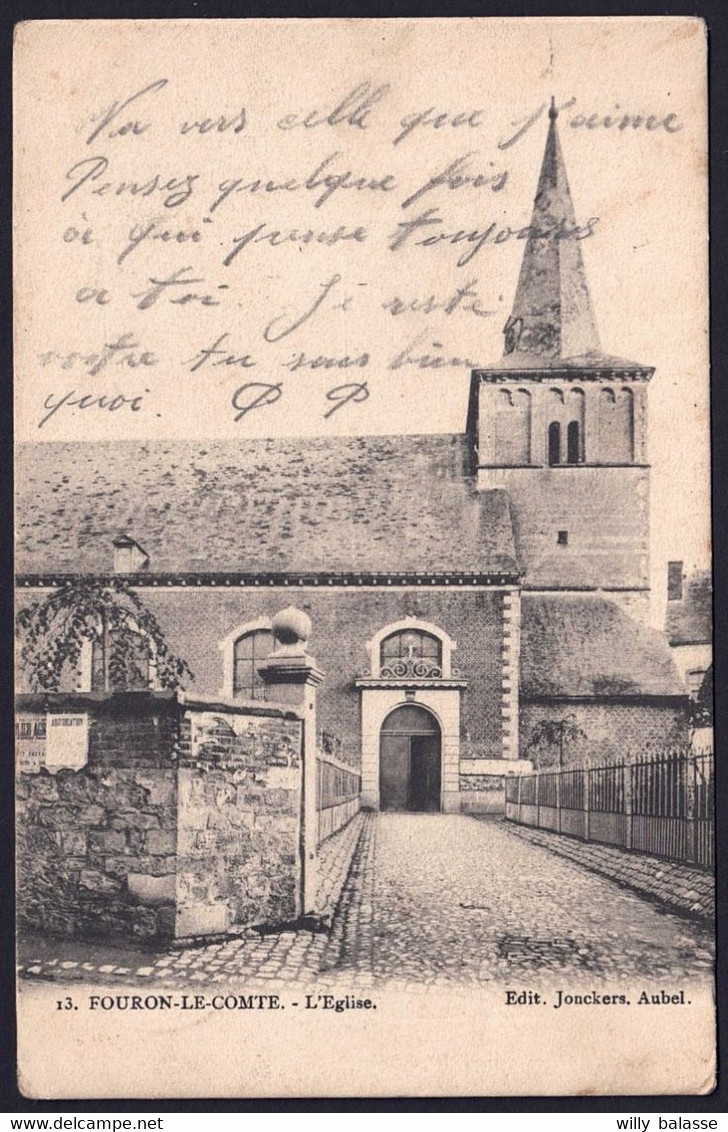 Va vers celle que j'aime
Pensez quelque fois
à qui pense toujours
a toi. Je reste
votre tu sais bien
quoi.
13. FOURON-LE-COMTE. - L'Eglise.
Edit. Jonckers. Aubel.
willy balasse